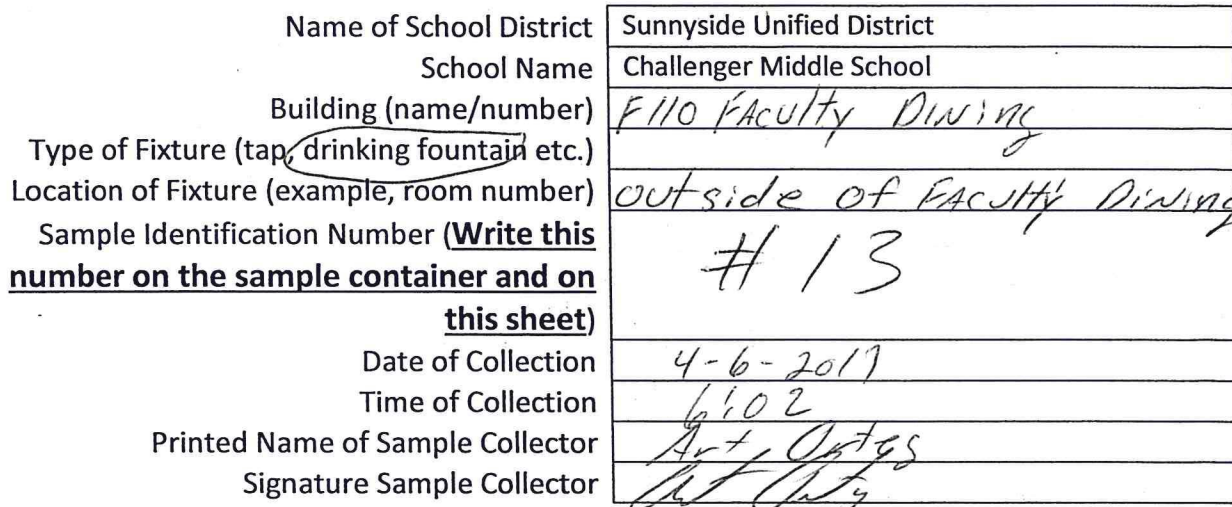 Name of School District Sunnyside Unified District
School Name Challenger Middle School
Building (name/number) F110 FAculty Dining
Type of Fixture (tap, drinking fountain etc.)
Location of Fixture (example, room number) outside of FAculty Dining
Sample Identification Number (Write this
number on the sample container and on
this sheet)
# 13
Date of Collection 4-6-2017
Time of Collection 6:02
Printed Name of Sample Collector Art
Signature Sample Collector